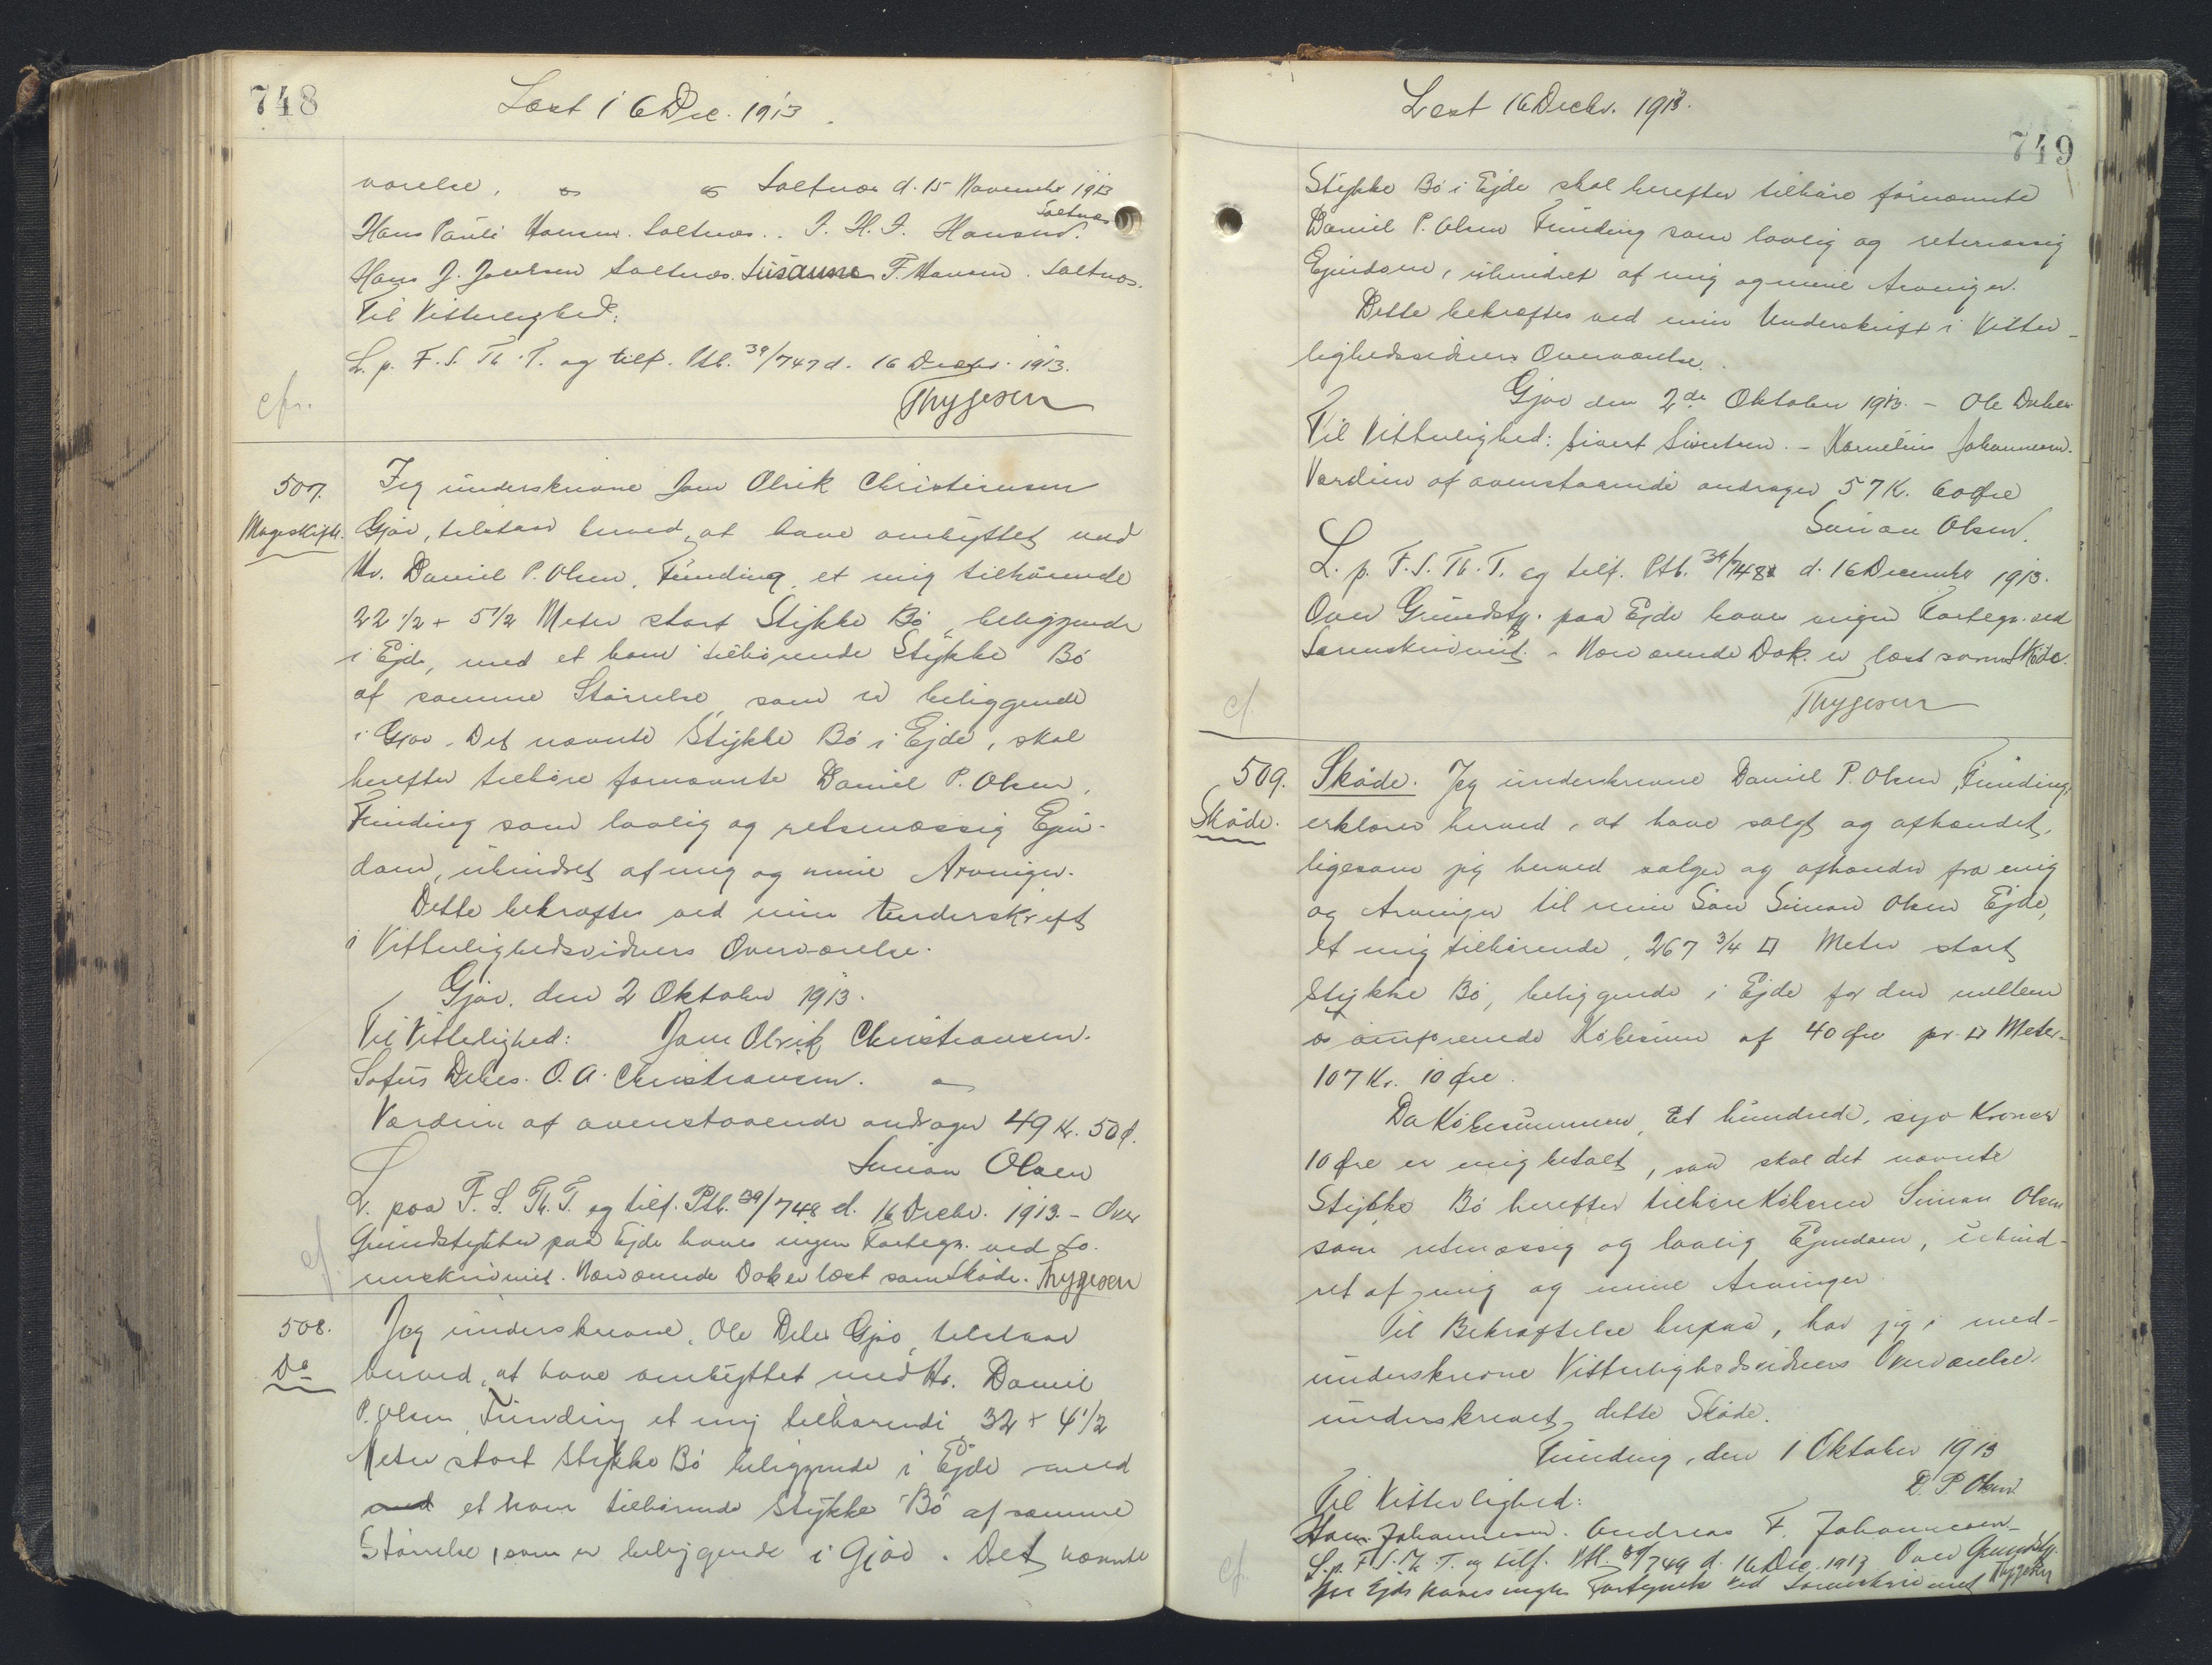 748
Læst 16 Dec. 1913.
værelse. Saltnæs d. 15 November 1913
Hans Pauli Hansen. Saltnæs. J. H. J. Hansen. Saltnæs
Hans J. Jacobsen Saltnæs. Susanne F. Hansen. Saltnæs.
Til Vitterlighed:
L. p. F. S. Th. T. og tilf. Ptb. 39/747 d. 16 Decbr. 1913.
Thygesen
cfr.
507. Jeg underskrevne Jam Olrik Christiansen
Mageskifte. Gjov, tilstaar herved, at have ombyttet med
Hr. Daniel P. Olsen, Funding, et mig tilhörende
22 1/2 + 5 1/2 Meter stort Stykke Bö, beliggende
i Ejde, med et ham tilhörende Stykke Bö
af samme Störrelse, som er beliggende
i Gjov. Det nævnte Stykke Bö i Ejde, skal
herefter tilhöre fornævnte Daniel P. Olsen,
Funding som lovlig og retsmæssig Ejen-
dom, uhindret af mig og mine Arvinger.
Dette bekræftes ved min Underskrift
i Vitterlighedsvidners Overværelse.
Gjov. den 2 Oktober 1913.
Til Vitterlighed: Jam Olrik Christiansen.
Sofus Debes. O. A. Christiansen.
Værdien af ovenstaaende andrager 49 Kr. 50 Ø.
Simon Olsen
L. paa F. S. Th. T. og tilf. Ptb. 39/748 d. 16 Decbr. 1913. - Over
Grundstykker paa Ejde haves ingen Fortegn. ved So-
renskriveriet. Nærværende Dok er læst som Sköde. Thygesen
cf.
508. Jeg underskrevne, Ole Debes Gjov, tilstaar
Do herved, at have ombyttet med Hr. Daniel
P. Olsen, Funding et mig tilhörende 32 + 4 1/2
Meter stort Stykke Bö beliggende i Ejde med
med et ham tilhörende Stykke Bö af samme
Störrelse, som er beliggende i Gjov. Det nævnte
Læst 16 Decbr. 1913.
749
Stykke Bö i Ejde skal herefter tilhöre förnævnte
Daniel P. Olsen Funding som lovlig og retsmæssig
Ejendom, uhindret af mig og mine Arvinger.
Dette bekræftes ved min Underskrift i Vitter-
lighedsvidners Overværelse.
Gjov den 2de Oktober 1913. - Ole Debes
Til Vitterlighed: Sivert Sivertsen. - Kornelius Johannesen.
Værdien af ovenstaaende andrager 57 K. 60 Øre
Simon Olsen.
L. p. F. S. Th. T. og tilf. Ptb. 39/748 d. 16 December 1913.
Over Grundstk. paa Ejde haves ingen Fortegn. ved
Sorenskriveriet. - Nærværende Dok. er læst som Sköde.
Thygesen
cf.
509. Sköde. Jeg underskrevne Daniel P. Olsen, Funding,
Sköde. erklærer herved, at have solgt og afhændet,
ligesom jeg herved sælger og afhænder fra mig
og Arvinger til min Sön Simon Olsen Ejde,
et mig tilhörende, 267 3/4 □ Meter stort
Stykke Bö, beliggende i Ejde for den mellem
os omforenede Köbesum af 40 Øre pr. □ Meter -
107 Kr. 10 Øre.
Da Köbesummen, Et hundrede, syv Kroner
10 Øre er mig betalt, saa skal det nævnte
Stykke Bö herefter tilhöre Köberen Simon Olsen
som retmæssig og lovlig Ejendom, uhind-
ret af mig og mine Arvinger.
Til Bekræftelse herpaa, har jeg i med-
underskrevne Vitterlighedsvidners Overværelse
underskrevet dette Sköde.
Funding, den 1 Oktober 1913
D. P. Olsen
Til Vitterlighed:
Hans Johannesen. Andreas F. Johannesen
L. p. F. S. Th. T. og tilf. Ptb. 39/749 d. 16 Dec. 1913 Over Grundstk.
paa Ejde haves ingen Fortegnelse ved Sorenskriveriet Thygesen
cf.